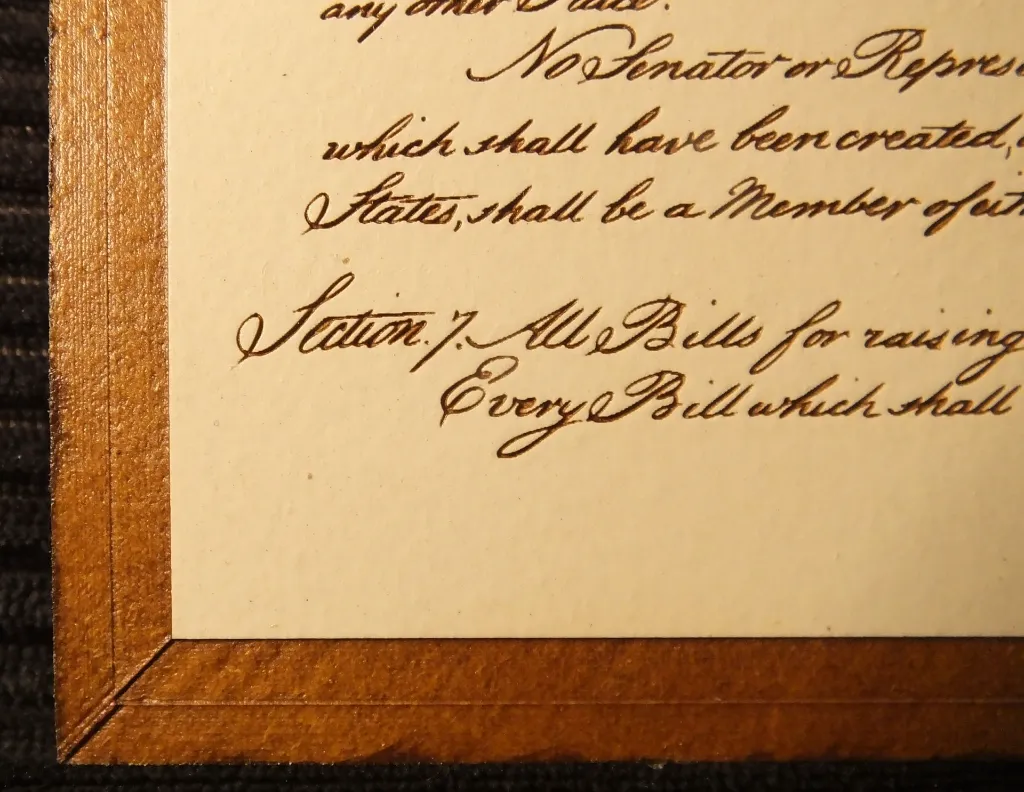 any other State.
No Senator or Repres
which shall have been created,
States, shall be a Member of eith
Section. 7. All Bills for raising
Every Bill which shall